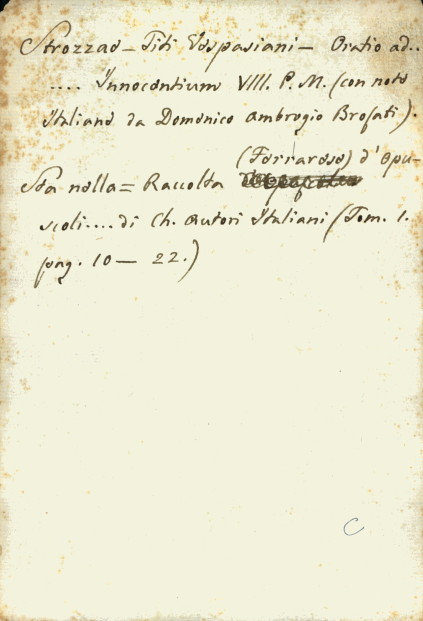 Strozzae - Titi Vespasiani - Oratio ad..
.... Innocentium VIII. P. M. (con note
Italiane da Domenico Ambrogio Brofati).
(Ferrarese) d'opu-
Sta nella = Raccolta
scoli.... di Ch. Autori Italiani (Tom. 1.
pag. 10 — 22.)
C